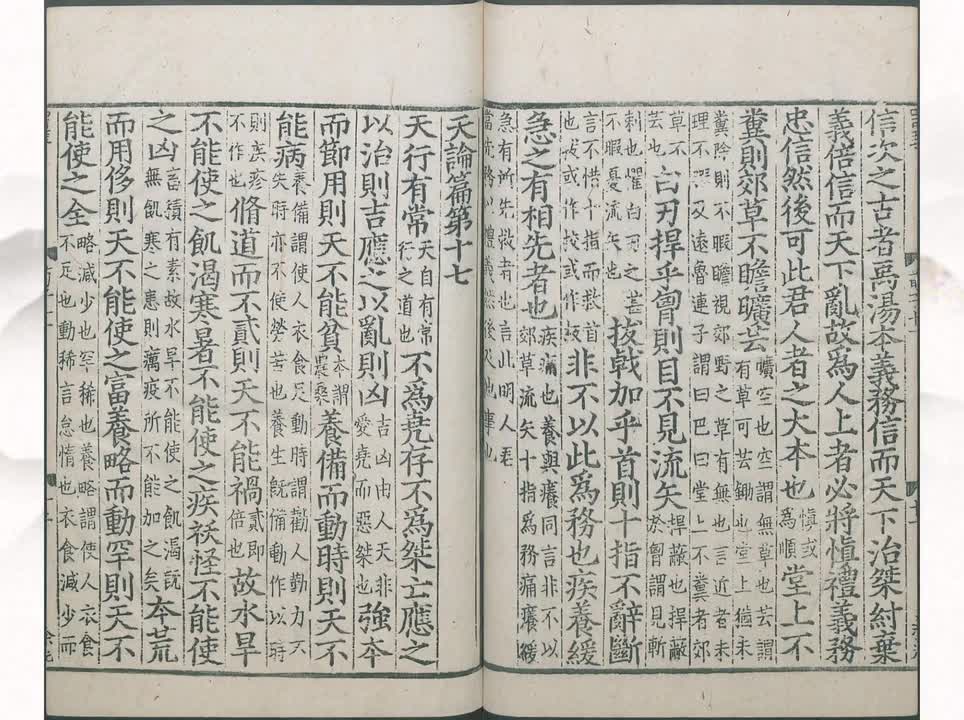 信次之古者禹湯本義務信而天下治桀紂棄
義倍信而天下亂故爲人上者必將慎禮義務
忠信然後可此君人者之大本也慎或爲順堂上不
糞則郊草不瞻曠芸曠空也空謂無草也芸謂有草可芸鋤也堂上猶未
糞除則不暇瞻視郊野之草有無也言近者未理不暇及遠魯連子謂田巴曰堂上不糞者郊
草不芸也白刃捍乎胷則目不見流矢捍蔽也捍蔽於胷謂見斬
刺也懼白刃之甚不暇憂流矢也拔戟加乎首則十指不辭斷
言不惜十指而救首也拔或作校或作枝非不以此爲務也疾養緩
急之有相先者也疾痛也養與癢同言非不以郊草流矢十指爲務痛癢緩
急有所先救者也言此明人君當先務以禮義然後及他事也
天論篇第十七
天行有常天自有常行之道也不爲堯存不爲桀亡應之
以治則吉應之以亂則凶吉凶由人天非愛堯而惡桀也強本
而節用則天不能貧本謂農桑養備而動時則天不
能病養備謂使人衣食足動時謂勸人勤力不失時亦不使勞苦也養生旣備動作以時
則疾疹不作也脩道而不貳則天不能禍貳即倍也故水旱
不能使之飢渴寒暑不能使之疾祅怪不能使
之凶畜積有素故水旱不能使之飢渴旣無飢寒之患則癘疫所不能加之矣本荒
而用侈則天不能使之富養略而動罕則天不
能使之全略減少也罕稀也養略謂使人衣食不足也動稀言怠惰也衣食減少而